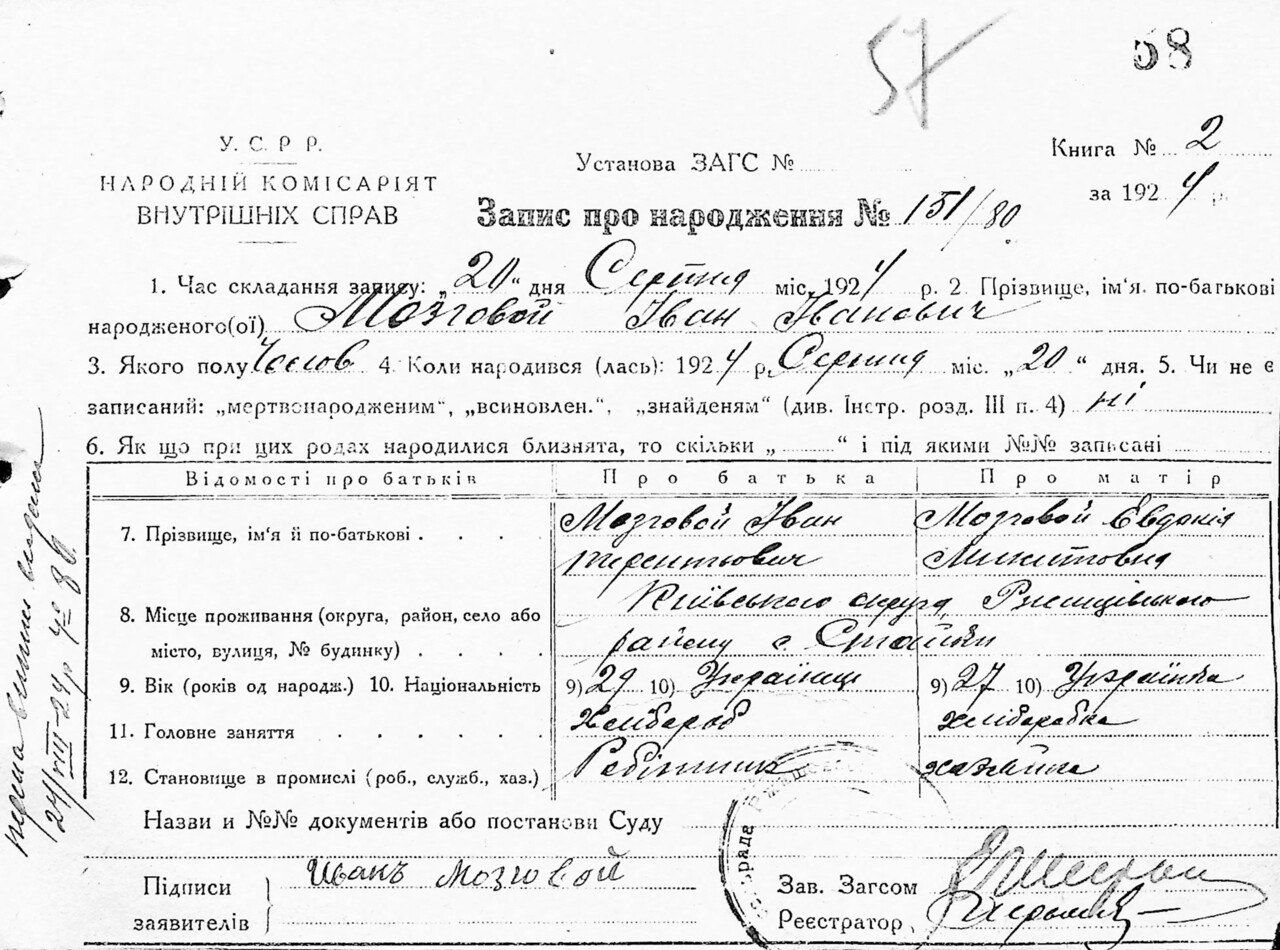 57
58
У. С. Р Р.
НАРОДНІЙ КОМІСАРІЯТ
ВНУТРІШНІХ СПРАВ
Установа ЗАГС №
Книга № 2
за 1924 р.
Запис про народження № 151/80
1. Час складання запису: „20“ дня Серпня міс. 1924 р. 2. Прізвище, ім'я по-батькові
народженого(ої) Мозговой Іван Іванович
3. Якого полу Чолов 4. Коли народився (лась): 1924 р. Серпня міс. „20“ дня. 5. Чи не є
записаний: „мертвонародженим“, „всиновлен.“, „знайденям“ (див. Інстр. розд. III п. 4) ні
6. Як що при цих родах народилися близнята, то скільки „ “ і під якими №№ записані
Відомості про батьків Про батька Про матір
7. Прізвище, ім'я й по-батькові Мозговой Іван Мозговой Євдокія
терентьович Микитовна
8. Місце проживання (округа, район, село або Київського округа Ржищівського
місто, вулиця, № будинку) району с. Стайки
9. Вік (років од народж.) 10. Національність 9) 29 10) Українець 9) 27 10) Українка
11. Головне заняття хлібороб хліборобка
12. Становище в промислі (роб., служб., хаз.) Робітник хазяйка
Назви и №№ документів або постанови Суду
Підписи
заявителів
Иванъ Мозговой
Зав. Загсом
Реєстратор
24/VIII-24 р. № 80